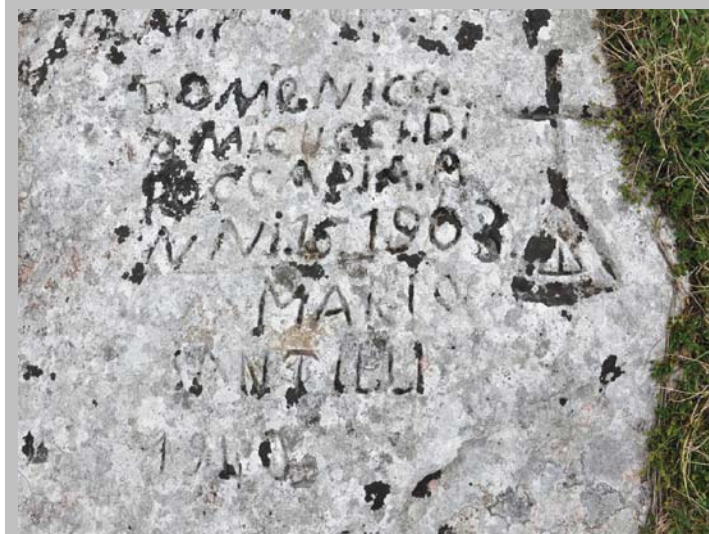 DOMENICO.
DAMICUCCI.DI
ROCCAPIA.A
NNi.15 1903
MARIO
ANTILLI
1940